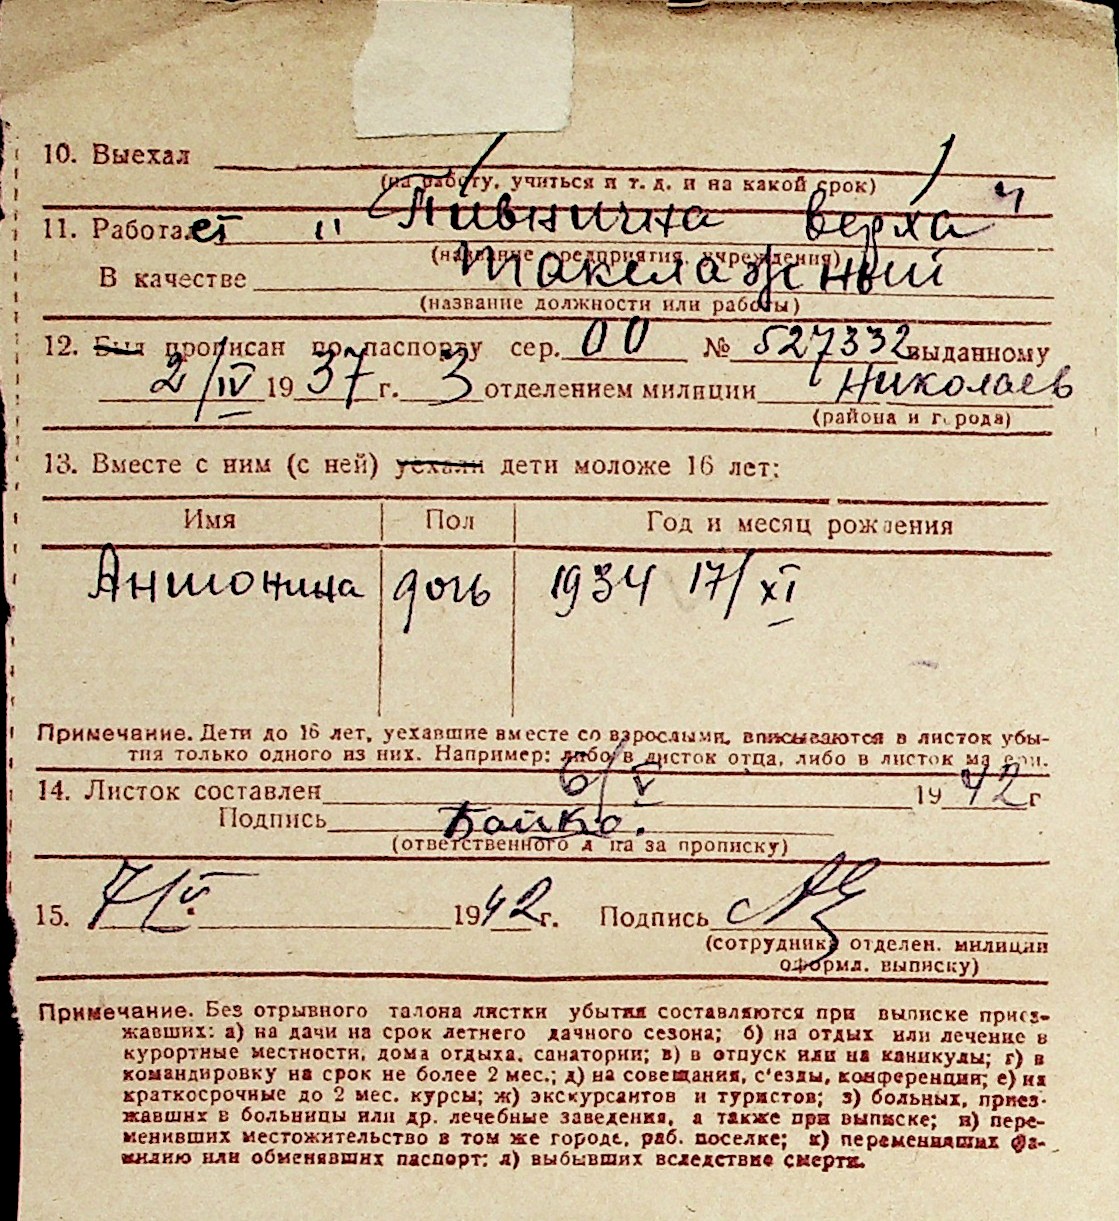 10. Выехал
(на работу, учиться и т. д. и на какой срок)
11. Работает "Пивнична верхва"
(название предприятия, учреждения)
В качестве такелажный
(название должности или работы)
12. Был прописан по паспорту сер. 00 № 527332 выданному
2/IV 1937 г. 3 отделением милиции Николаев
(района и города)
13. Вместе с ним (с ней) уехали дети моложе 16 лет:
Имя Пол Год и месяц рождения
Антонина дочь 1934 17/XI
Примечание. Дети до 16 лет, уехавшие вместе со взрослыми, вписываются в листок убы-
тия только одного из них. Например: либо в листок отца, либо в листок матери.
14. Листок составлен 6/V 1942 г
Подпись Бойко.
(ответственного лица за прописку)
15. 7/V 1942 г. Подпись
(сотрудника отделен. милиции
оформл. выписку)
Примечание. Без отрывного талона листки убытия составляются при выписке приез-
жавших: а) на дачи на срок летнего дачного сезона; б) на отдых или лечение в
курортные местности, дома отдыха, санатории; в) в отпуск или на каникулы; г) в
командировку на срок не более 2 мес.; д) на совещания, с'езды, конференции; е) на
краткосрочные до 2 мес. курсы; ж) экскурсантов и туристов; з) больных, приез-
жавших в больницы или др. лечебные заведения, а также при выписке; и) пере-
менивших местожительство в том же городе, раб. поселке; к) переменивших фа-
милию или обменявших паспорт; л) выбывших вследствие смерти.